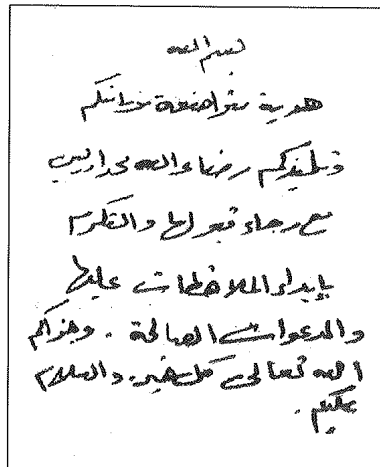 بسم الله
هدية متواضعة من ابنكم
وتلميذكم رضاء الله محمد ادريس
مع رجاء قبولها والتكرم
بإبداء الملاحظات عليها
والدعوات الصالحة . وجزاكم
الله تعالى كل خير. والسلام
عليكم .